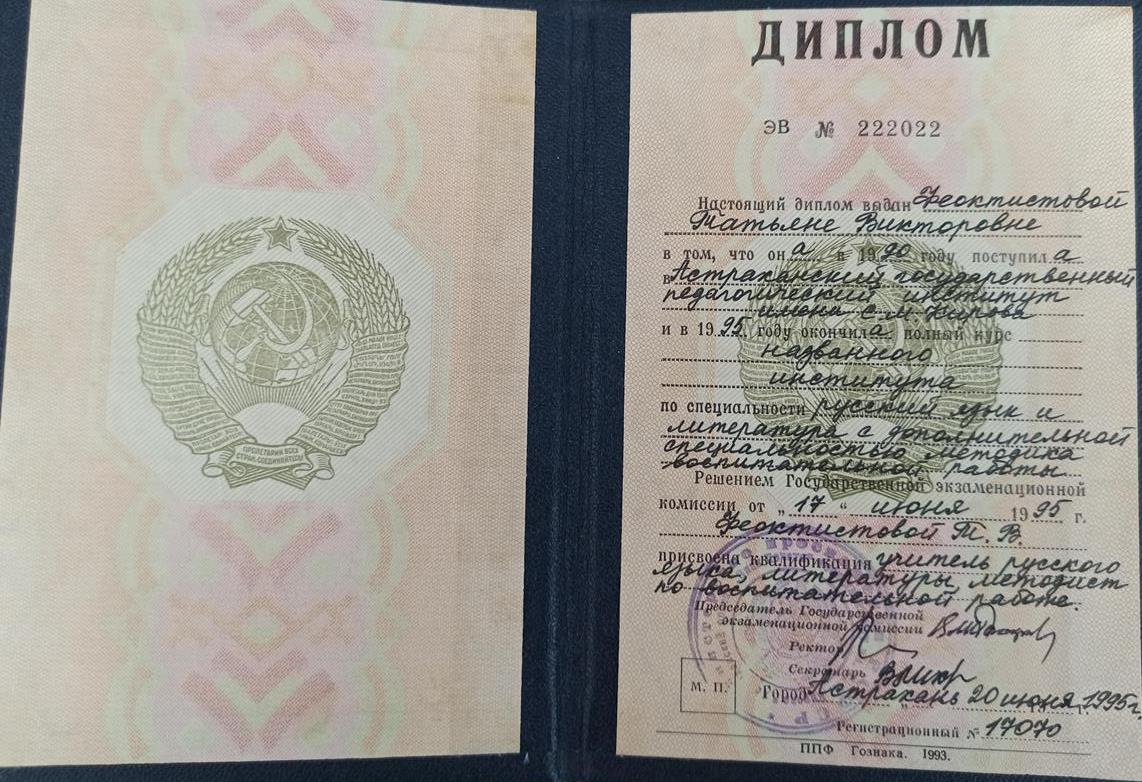 ПРОЛЕТАРИИ ВСЕХ
СТРАН, СОЕДИНЯЙТЕСЬ!
ДИПЛОМ
ЭВ № 222022
Настоящий диплом выдан Феоктистовой
Татьяне Викторовне
в том, что он а в 19 90 году поступил а
в Астраханский государственный
педагогический институт
имени С. М. Кирова
и в 19 95 году окончил а полный курс
названного
института
по специальности русский язык и
литература с дополнительной
специальностью методика
воспитательной работы
Решением Государственной экзаменационной
комиссии от „ 17 “ июня 19 95 г.
Феоктистовой Т. В.
присвоена квалификация учитель русского
языка, литературы методист
по воспитательной работе.
Председатель Государственной
экзаменационной комиссии
Ректор
Секретарь
М. П.
Город Астрахань 20 июня 1995г
Регистрационный № 17070
ППФ Гознака. 1993.